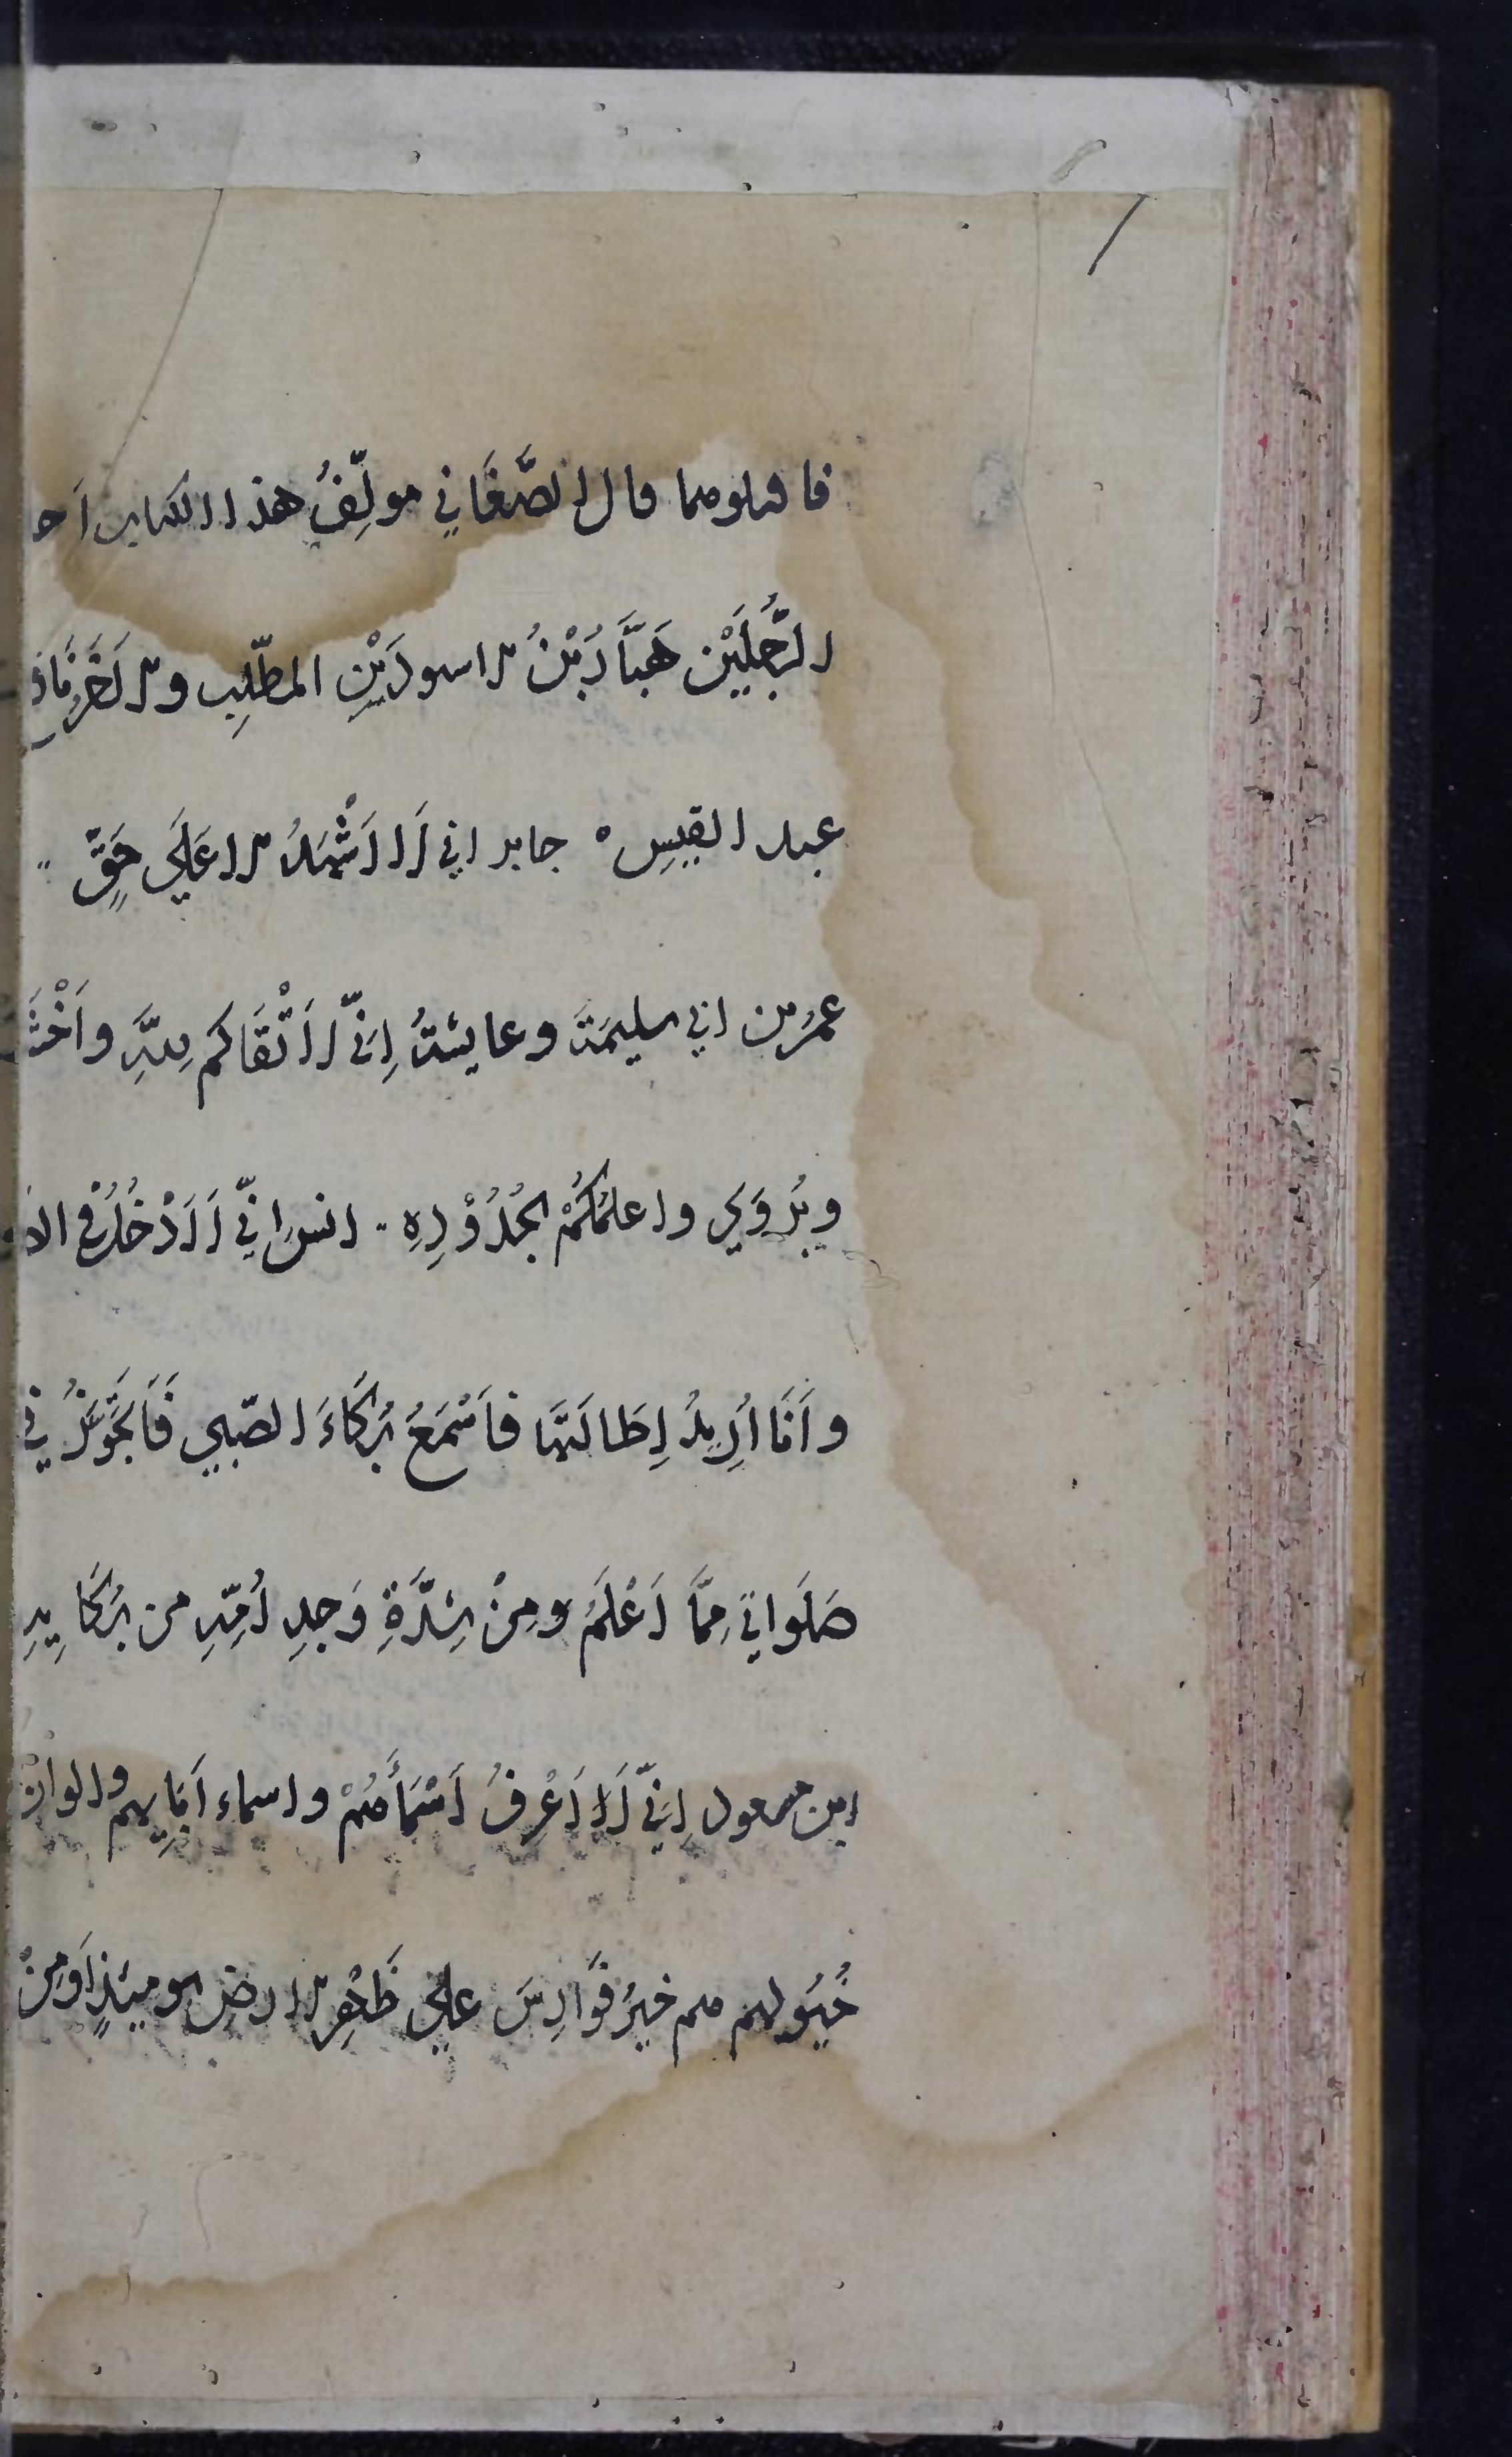 فاقتلوهما قال الصَّغَاني مولِّفُ هذا الكتاب احد
الرَّجُلَيْن هَبَّارُ بْنُ الاسود بْنِ المطّلِب والاَخَرُ نَافِع
عبد القيس ه جابر اني لَا اَشْهَدُ الا عَلَي حَقٍّ
عمرُ بن ابي سليمَةَ وعايشةُ اِنّي لَاَتْقَاكم لِلّهِ واَخْشَا
ويُرْوَي واعلمُكُمْ بحُدُوْدِهِ انس اِنِّي لَاَدْخُلُ في الصـ
واَنَا اُرِيْدُ اِطَالَتَهَا فاَسْمَعُ بُكَاءَ الصّبيِ فَاَتَجَوَّزُ في
صَلَواتي مِمَّا اَعْلَمُ ومِنْ شِدَّةِ وَجدِ اُمِّهِ من بُكَايِهِ
ابن مسعود اِنّي لَاَعْرِفُ اَسْمَاَهُمْ واسماء اَبَايِهِم والوانَ
خُيُولِهم هم خيرُ فَوَارِسَ علي ظَهْرِ الارضِ يوميئذٍ اَوْمِنْ
/